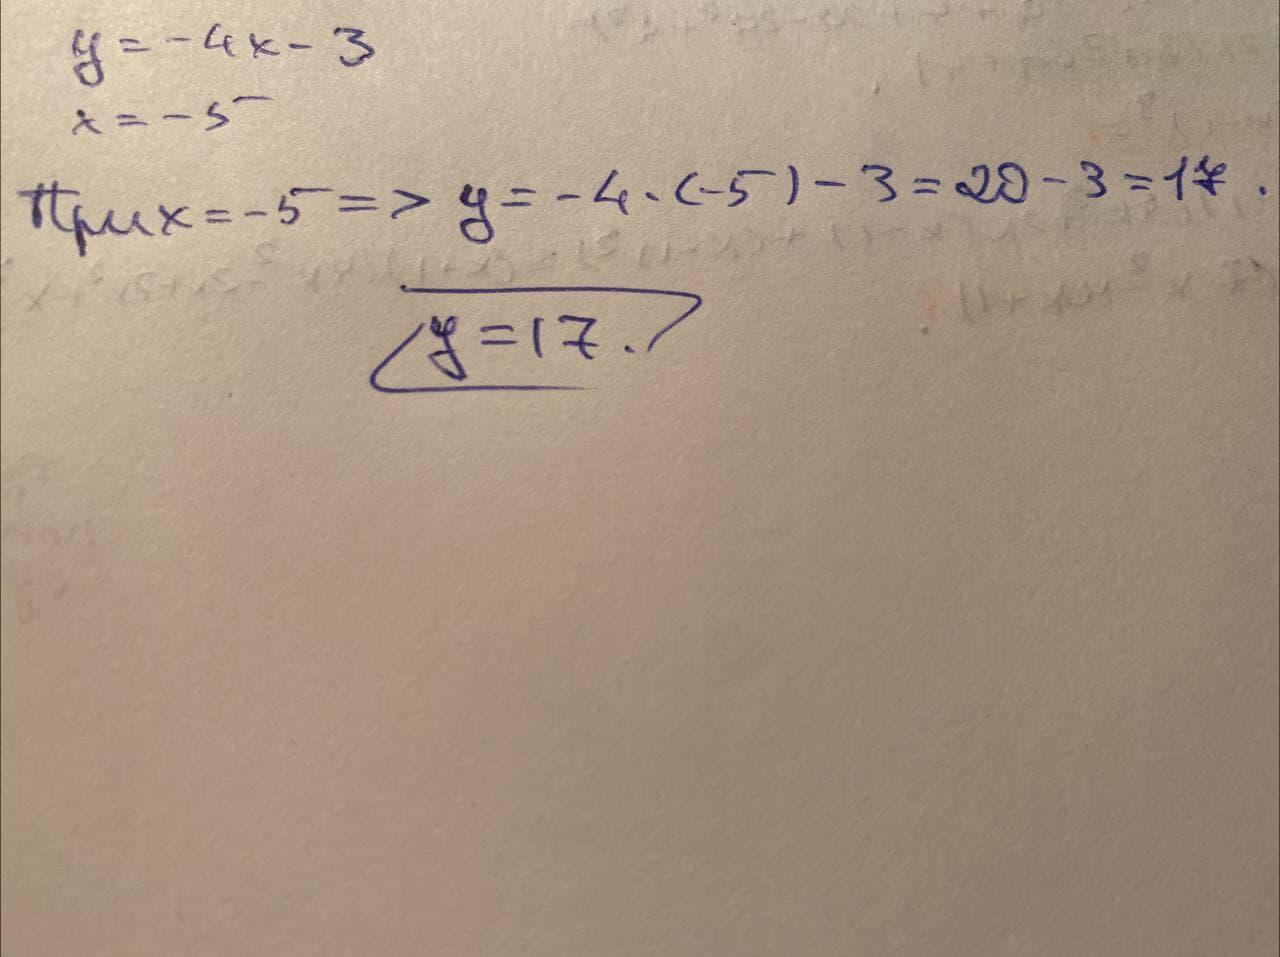 y = -4x - 3
x = -5
При x = -5 => y = -4 · (-5) - 3 = 20 - 3 = 17.
y = 17.